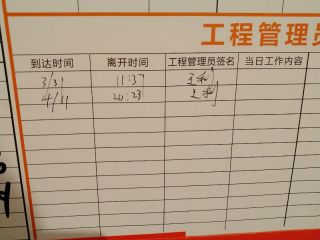 工程管理员
到达时间 离开时间 工程管理员签名 当日工作内容
3/31 11:37 王利
4/11 20:23 王利